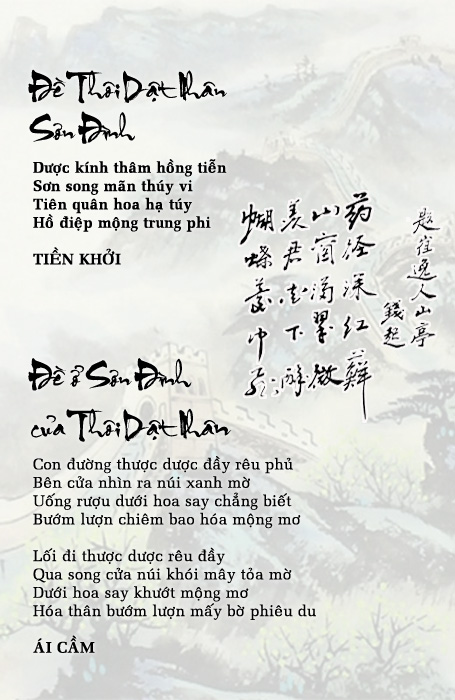 Đề Thôi Dật Nhân
Sơn Đình
Dược kính thâm hồng tiễn
Sơn song mãn thúy vi
Tiên quân hoa hạ túy
Hồ điệp mộng trung phi
TIỀN KHỞI
题崔逸人山亭
錢起
药径深红蘚
山窗满翠微
羡君花下醉
蝴蝶夢中飛
Đề ở Sơn Đình
của Thôi Dật Nhân
Con đường thược dược đầy rêu phủ
Bên cửa nhìn ra núi xanh mờ
Uống rượu dưới hoa say chẳng biết
Bướm lượn chiêm bao hóa mộng mơ
Lối đi thược dược rêu đầy
Qua song cửa núi khói mây tỏa mờ
Dưới hoa say khướt mộng mơ
Hóa thân bướm lượn mấy bờ phiêu du
ÁI CẦM